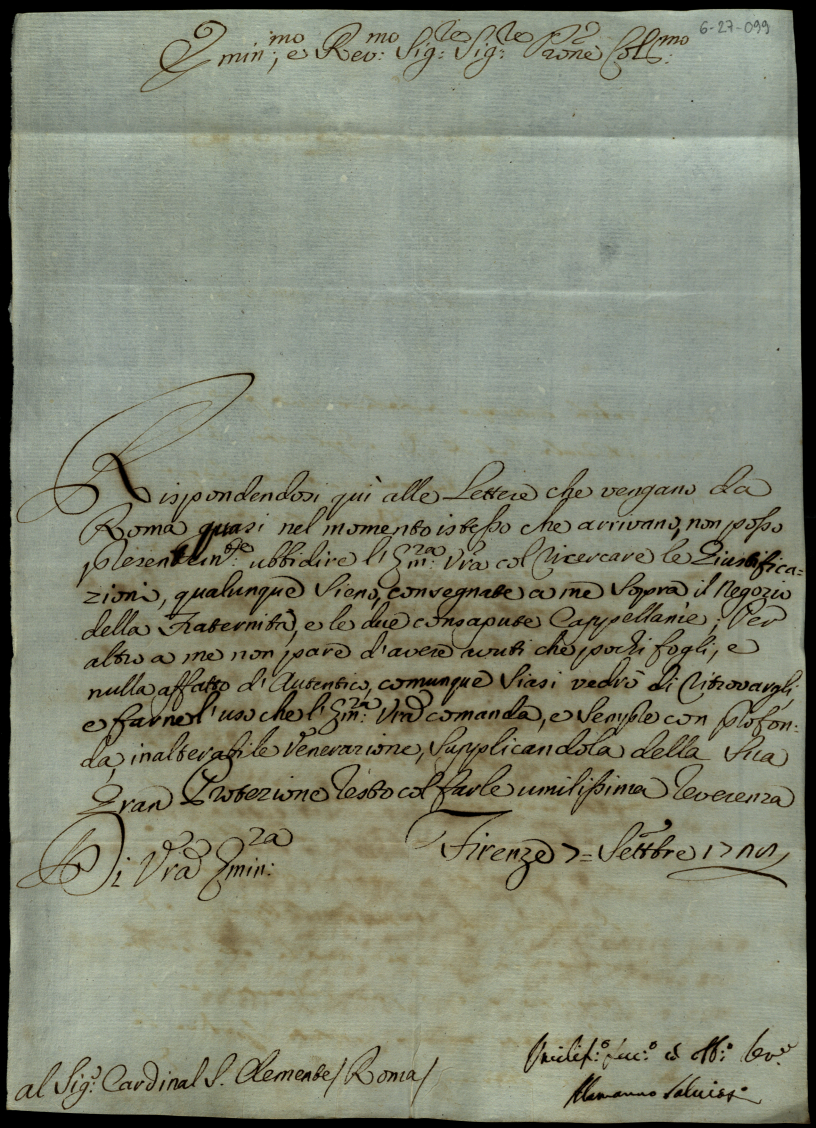 6-27-099
Emin:mo, e Rev:mo Sig:re Sig:re Prone Col:mo
Rispondendosi quì alle Lettere che vengano da
Roma quasi nel momento istesso che arrivano, non posso
presentem:te ubbidire l'Em:za Vra col ricercare le Giustifica=
zioni, qualunque sieno, consegnate a me sopra il Negozio
della Fraternità, e le due consapute Cappellanie; Per
altro a me non pare d'avere avuti che pochi fogli, e
nulla affatto d'Autentico, comunque siasi vedrò di ritrovargli,
e farne l'uso che l'Em:za Vra comanda, e sempre con profon:
da, inalterabile Venerazione, supplicandola della Sua
Gran Protezione resto col farle umilissima reverenza
Di Vra Emin:za
Firenze 7= Settbre
al Sig:r Cardinal S. Clemente / Roma /
Umiliss:o
Alamanno Salviati